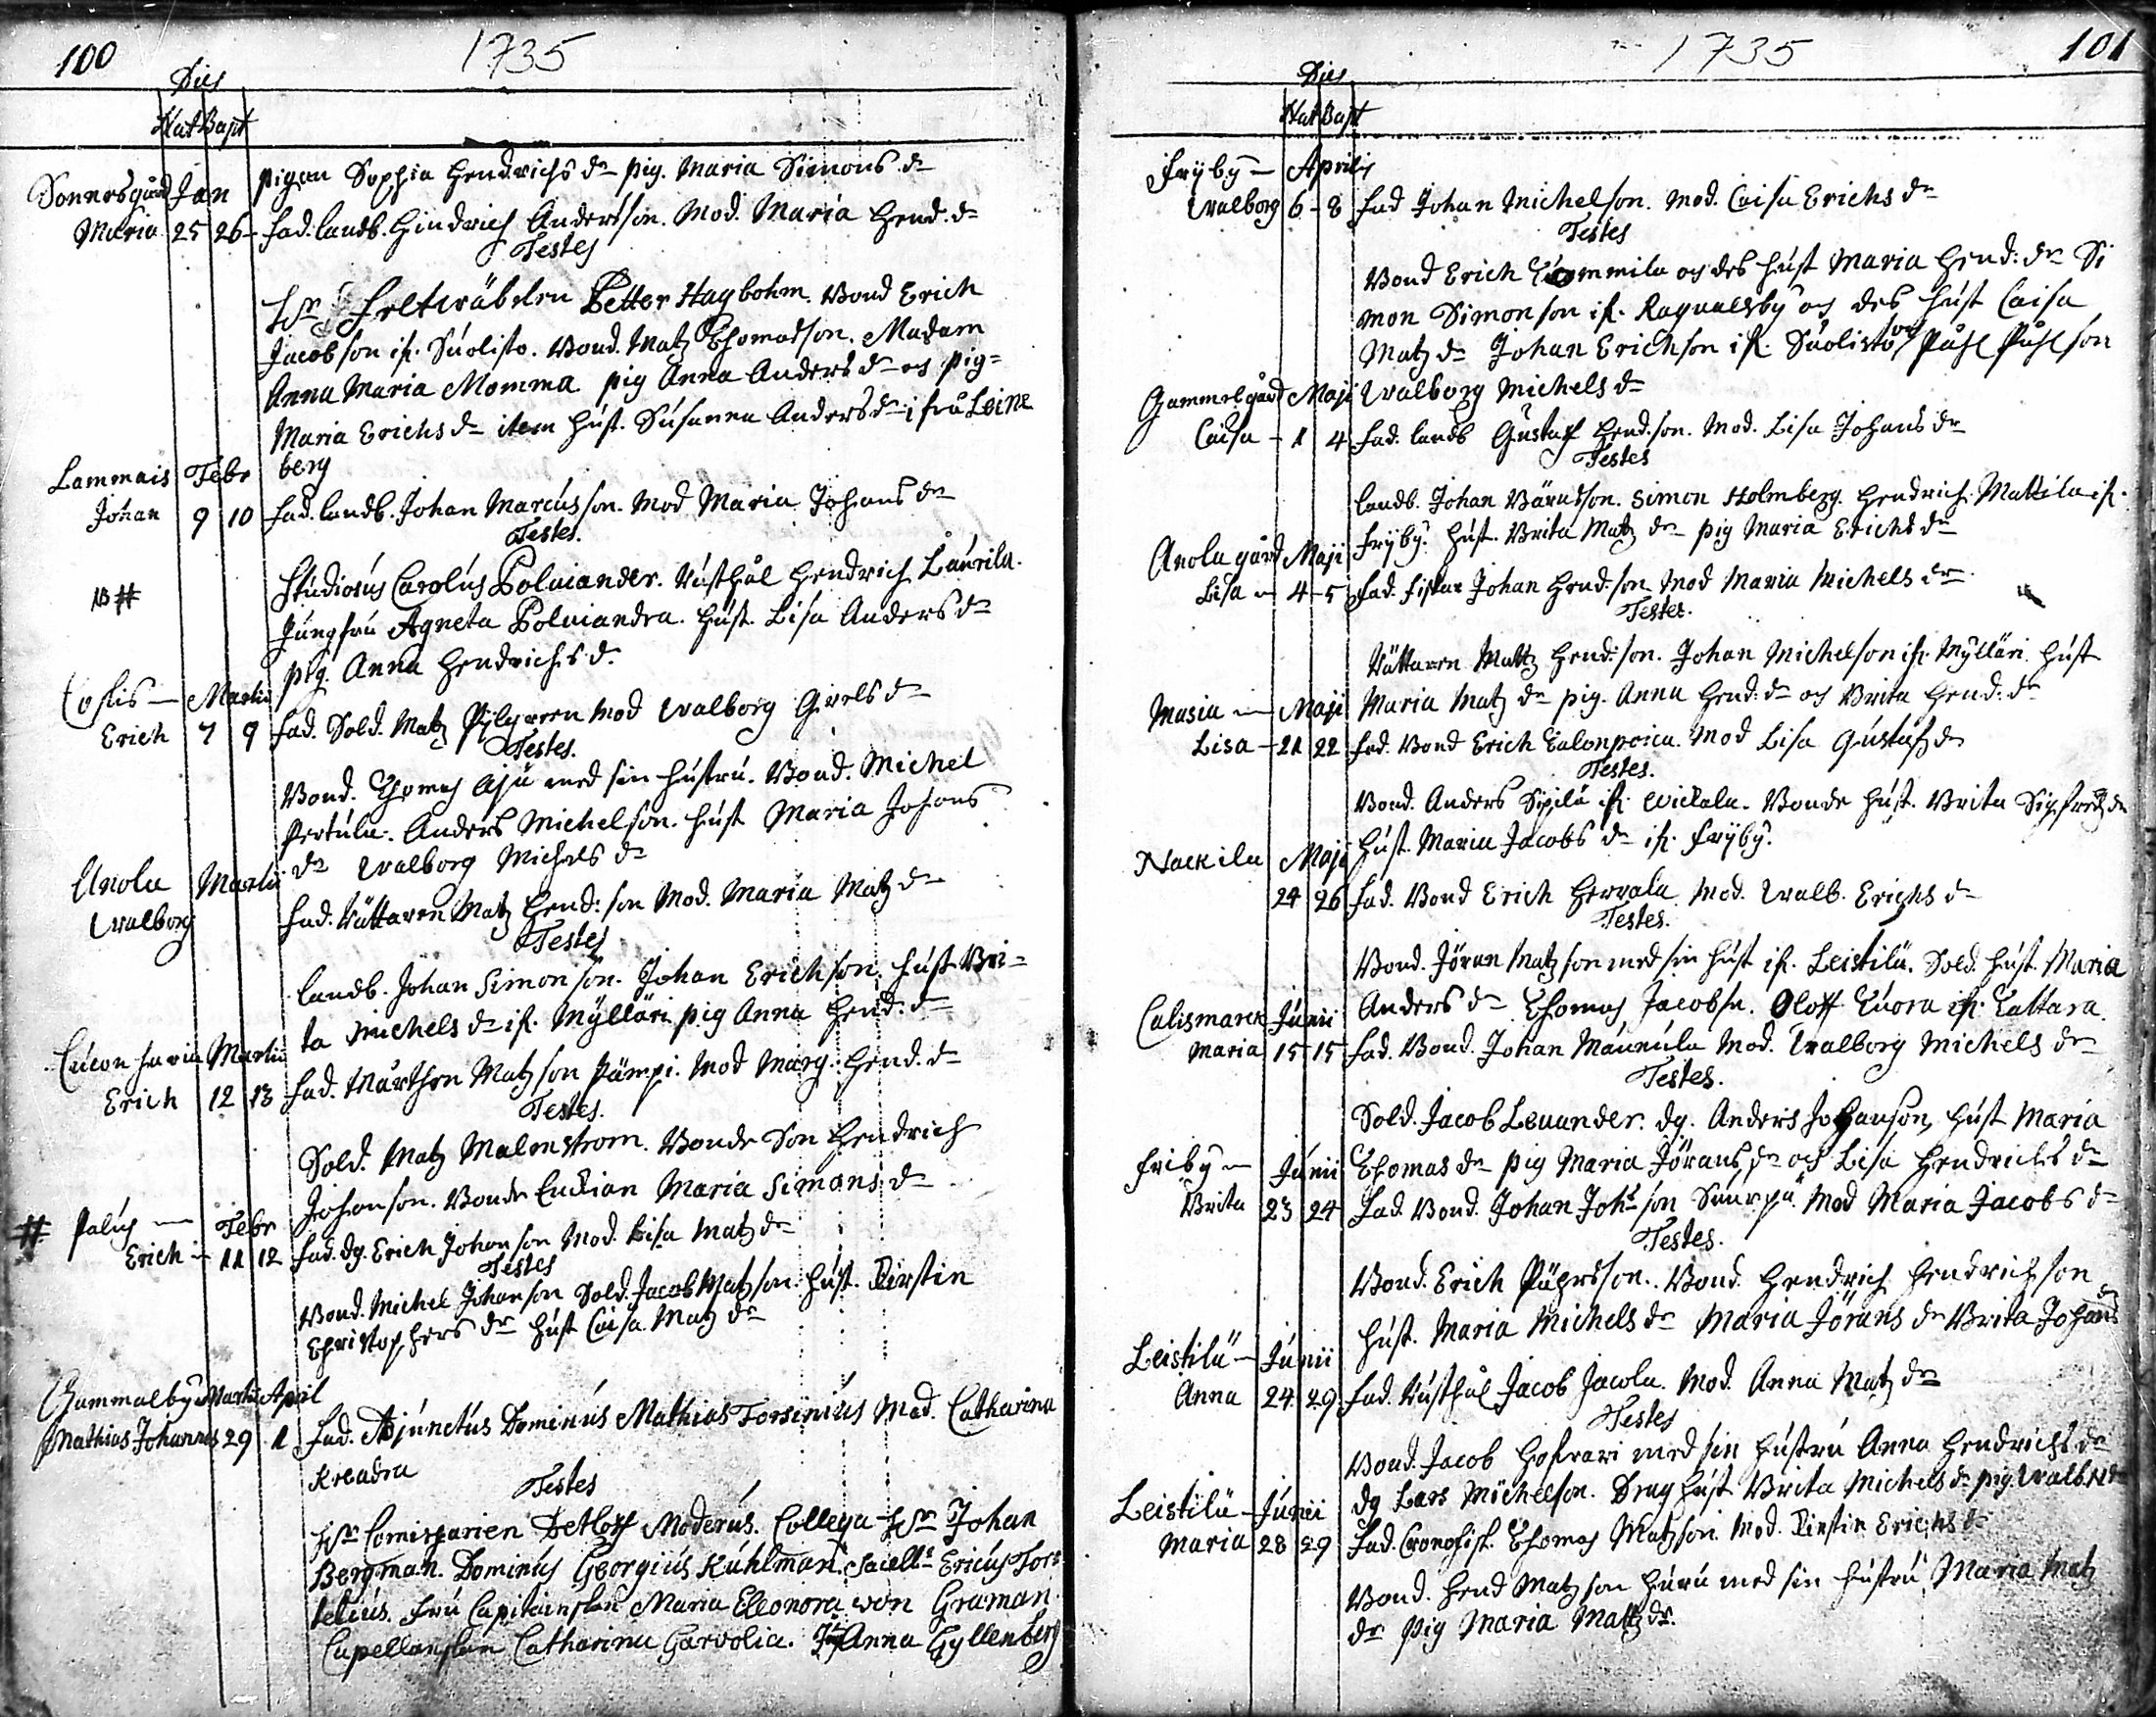 100
1735
Dies
Nat Bapt
pigan Sophia Hendrichs dr pig. Maria Simons dr
Sonnesgård Jan
Maria 25 26 fad. landb. Hindrich Andersson. Mod. Maria Hend. dr
Testes
Hr Petter Hagbohm. Bond Erich
Jacobson if. Suolisto. Bond. Matz Thomasson. Madam
Anna Maria Momma pig Anna Anders dr och pig
Maria Erichs dr item hust. Susanna Anders dr ifrå Leine
berg
Lammais Febr
Johan 9 10 fad. landb. Johan Marcusson. Mod Maria Johans dr
Testes.
NB # Studiosus Carolus Polviander. Rusthål Hendrich Laurila.
Jungfru Agneta Polviandra. hust. Lisa Anders dr
pig. Anna Hendrichs d.
Martii
Erich 7 9 fad. Sold. Matz Pilgreen Mod Walborg dr
Testes.
Bond. Thomas med sin hustru. Bond. Michel
Pertula. Anders Michelson. hust Maria Johans
dr Walborg Michels dr
Anola Martii
Walborg fad. Rättaren Matz Hend: son Mod. Maria Matz dr
Testes
landb. Johan Simonson. Johan Erichson. hust Bri-
ta Michels dr if. Mylläri pig Anna Hend. dr
Martii
Erich 12 13 fad. Mårthen Matzson Pämpi. Mod Marg. Hend. dr
Testes.
Sold. Matz Malmstrom. Bonde Son Hendrich
Johanson. Bonde Enckian Maria Simons dr
# Palus Febr
Erich 11 12 fad. dg. Erich Johanson Mod. Lisa Matz dr
Testes
Bond. Michel Johanson Sold. Jacob Matzson. hust. Kirstin
Christophers dr hust Caisa Matz dr
Gammalby Martii April
Mathias Johannes 29 1 fad. Adjunctus Dominus Mathias Forsenius Mod. Catharina
Kreadra
Testes
Hr Comissarien Detloff Moderus. Collega Hr Johan
Bergman. Dominus Georgius Kuhlman. Sacells Ericus For-
selius. Fru Capitainskan Maria Eleonora von Graman
Capellanskan Catharina Garvolia. Jfr Anna Gyllenberg
1735
101
Dies
Nat Bapt
Fryby Aprilis
Walborg 6 8 fad Johan Michelson. Mod. Caisa Erichs dr
Testes
Bond Erich och des hust Maria Hend: dr Si
mon Simonson if. Ragvalsby och des hust Caisa
Matz dr Johan Erichson if. Suolisto och Påhl Påhlson
Gammelgård Maji Walborg Michels dr
Caisa 1 4 fad. landb Gustaf Hend.son. Mod. Lisa Johans dr
Testes
landb. Johan Bärndson. Simon Holmberg. Hendrich Mattila if.
Fryby. hust. Brita Matz dr pig Maria Erichs dr
Anola gård Maji
Lisa 4 5 fad. fiskar Johan Hend.son Mod Maria Michels dr
Testes.
Rättaren Mattz Hend:son. Johan Michelson if. Mylläri hust
Masia Maji Maria Matz dr pig. Anna Hend: dr och Brita Hend: dr
Lisa 21 22 fad. Bond Erich Talonpoica. Mod Lisa Gustafz dr
Testes.
Bond. Anders Sipilä if. Wickala. Bonde hust. Brita Sigfredz dr
Nackila Maji hust. Maria Jacobs dr if. Fryby.
24 26 fad. Bond Erich Hervala Mod. Walb. Erichs dr
Testes.
Bond. Jöran Matzson med sin hust if. Leistilä. Sold. hust. Maria
Anders dr Thomas Jacobsn. Oloff Kuora if. Kattara.
Calismarck Junii
Maria 15 15 fad. Bond. Johan Maunula Mod. Walborg Michels dr
Testes.
Sold. Jacob Levander. dg. Anders Johanson, hust Maria
Friby Junii Thomas dr pig Maria Jörans dr och Lisa Hendrichs dr
Brita 23 24 fad. Bond. Johan Johs son Mod Maria Jacobs dr
Testes.
Bond. Erich Påhrsson. Bond. Hendrich Hendrichson
hust. Maria Michels dr Maria Jörans dr Brita Johans dr
Leistilä Junii
Anna 24 29 fad. Rusthål Jacob Jacola. Mod. Anna Matz dr
Testes
Bond. Jacob med sin hustru Anna Hendrichs dr
dg Lars Michelson. Dreng hust Brita Michels dr pig. Walb
Leistilä Junii
Maria 28 29 fad. Thomas Matzson. Mod. Kirstin Erichs dr
Bond. Hend Matzson Huru med sin hustru Maria Matz
dr Pig Maria Mattz dr.